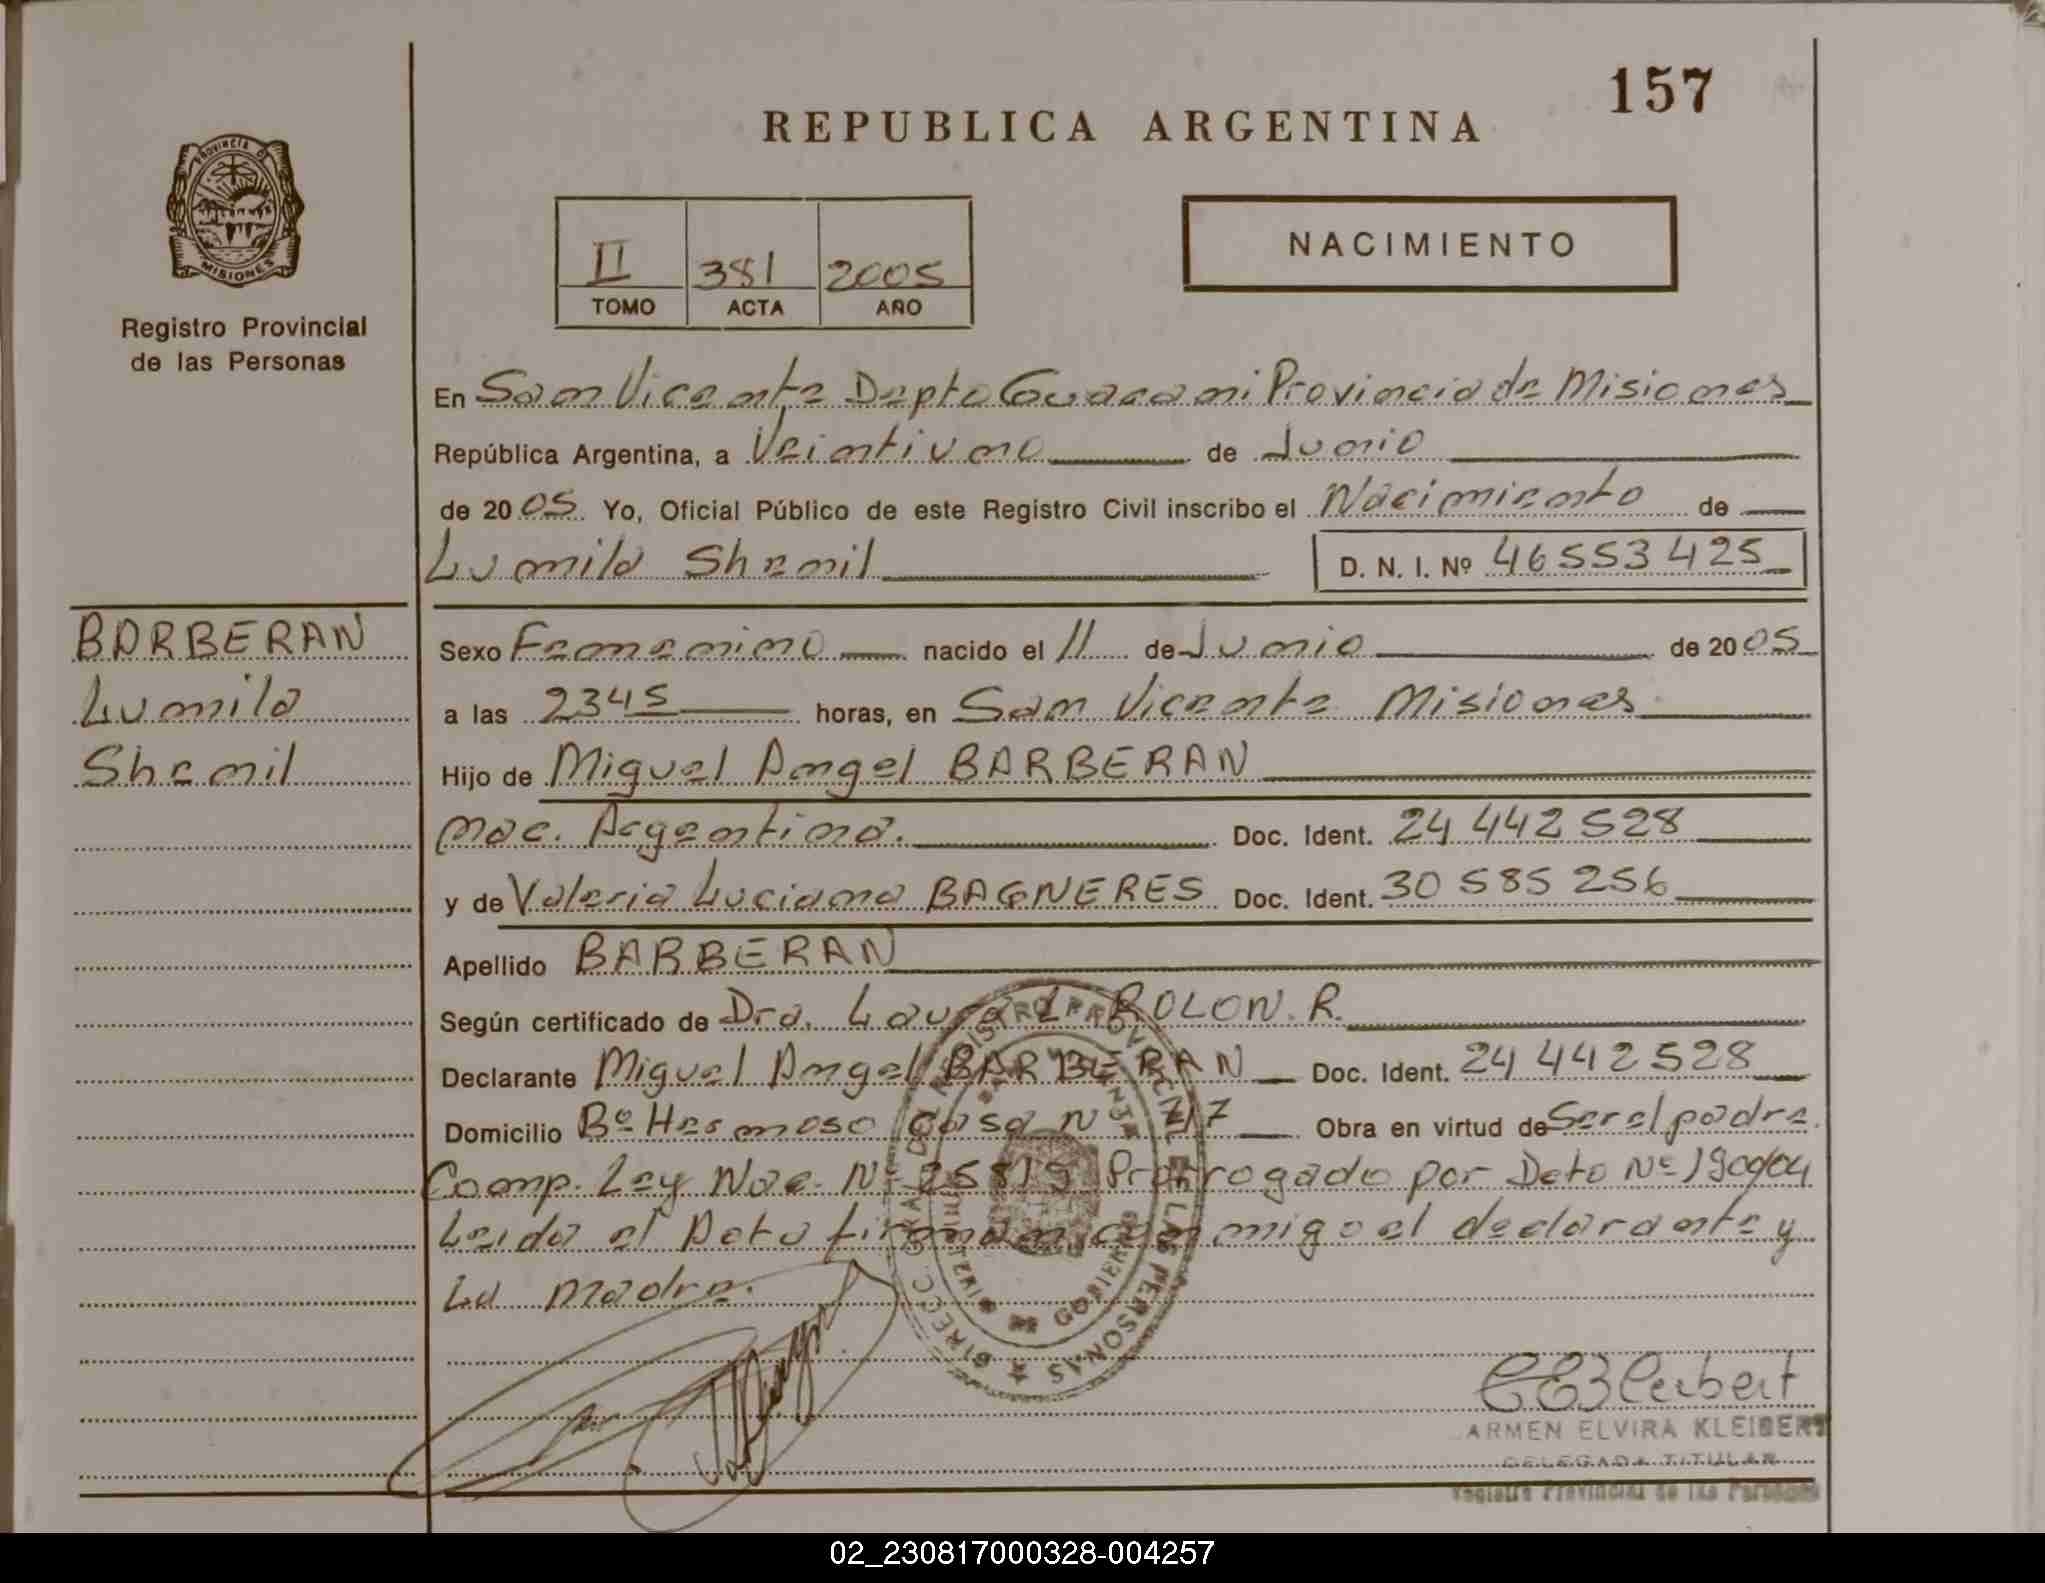 157
REPUBLICA ARGENTINA
PROVINCIA DE
MISIONES
II 381 2005
TOMO ACTA AÑO
NACIMIENTO
Registro Provincial
de las Personas
En San Vicente Depto Guarani Provincia de Misiones
República Argentina, a Veintiuno de Junio
de 2005. Yo, Oficial Público de este Registro Civil inscribo el Nacimiento de
Lumila Shemil
D. N. I. Nº 46553425
BARBERAN
Lumila
Shemil
Sexo Femenino nacido el 11 de Junio de 2005
a las 2345 horas, en San Vicente Misiones
Hijo de Miguel Angel BARBERAN
nac. Argentina. Doc. Ident. 24 442 528
y de Valeria Luciana BAGNERES Doc. Ident. 30 585 256
Apellido BARBERAN
Según certificado de Dra. Laura L. ROLON. R.
Declarante Miguel Angel BARBERAN Doc. Ident. 24 442 528
Domicilio Bº Hermoso casa n 217 Obra en virtud de Ser el padre.
Comp. Ley Nac. Nº 25819 Prorrogado por Dcto Nº 190/04
Leida el Acta firman conmigo el declarante y
La madre.
DIRECC. GRAL. DEL REGISTRO PROVINCIAL DE LAS PERSONAS
ARMEN ELVIRA KLEIBERT
DELEGADA TITULAR
Registro Provincial de las Personas
02_230817000328-004257